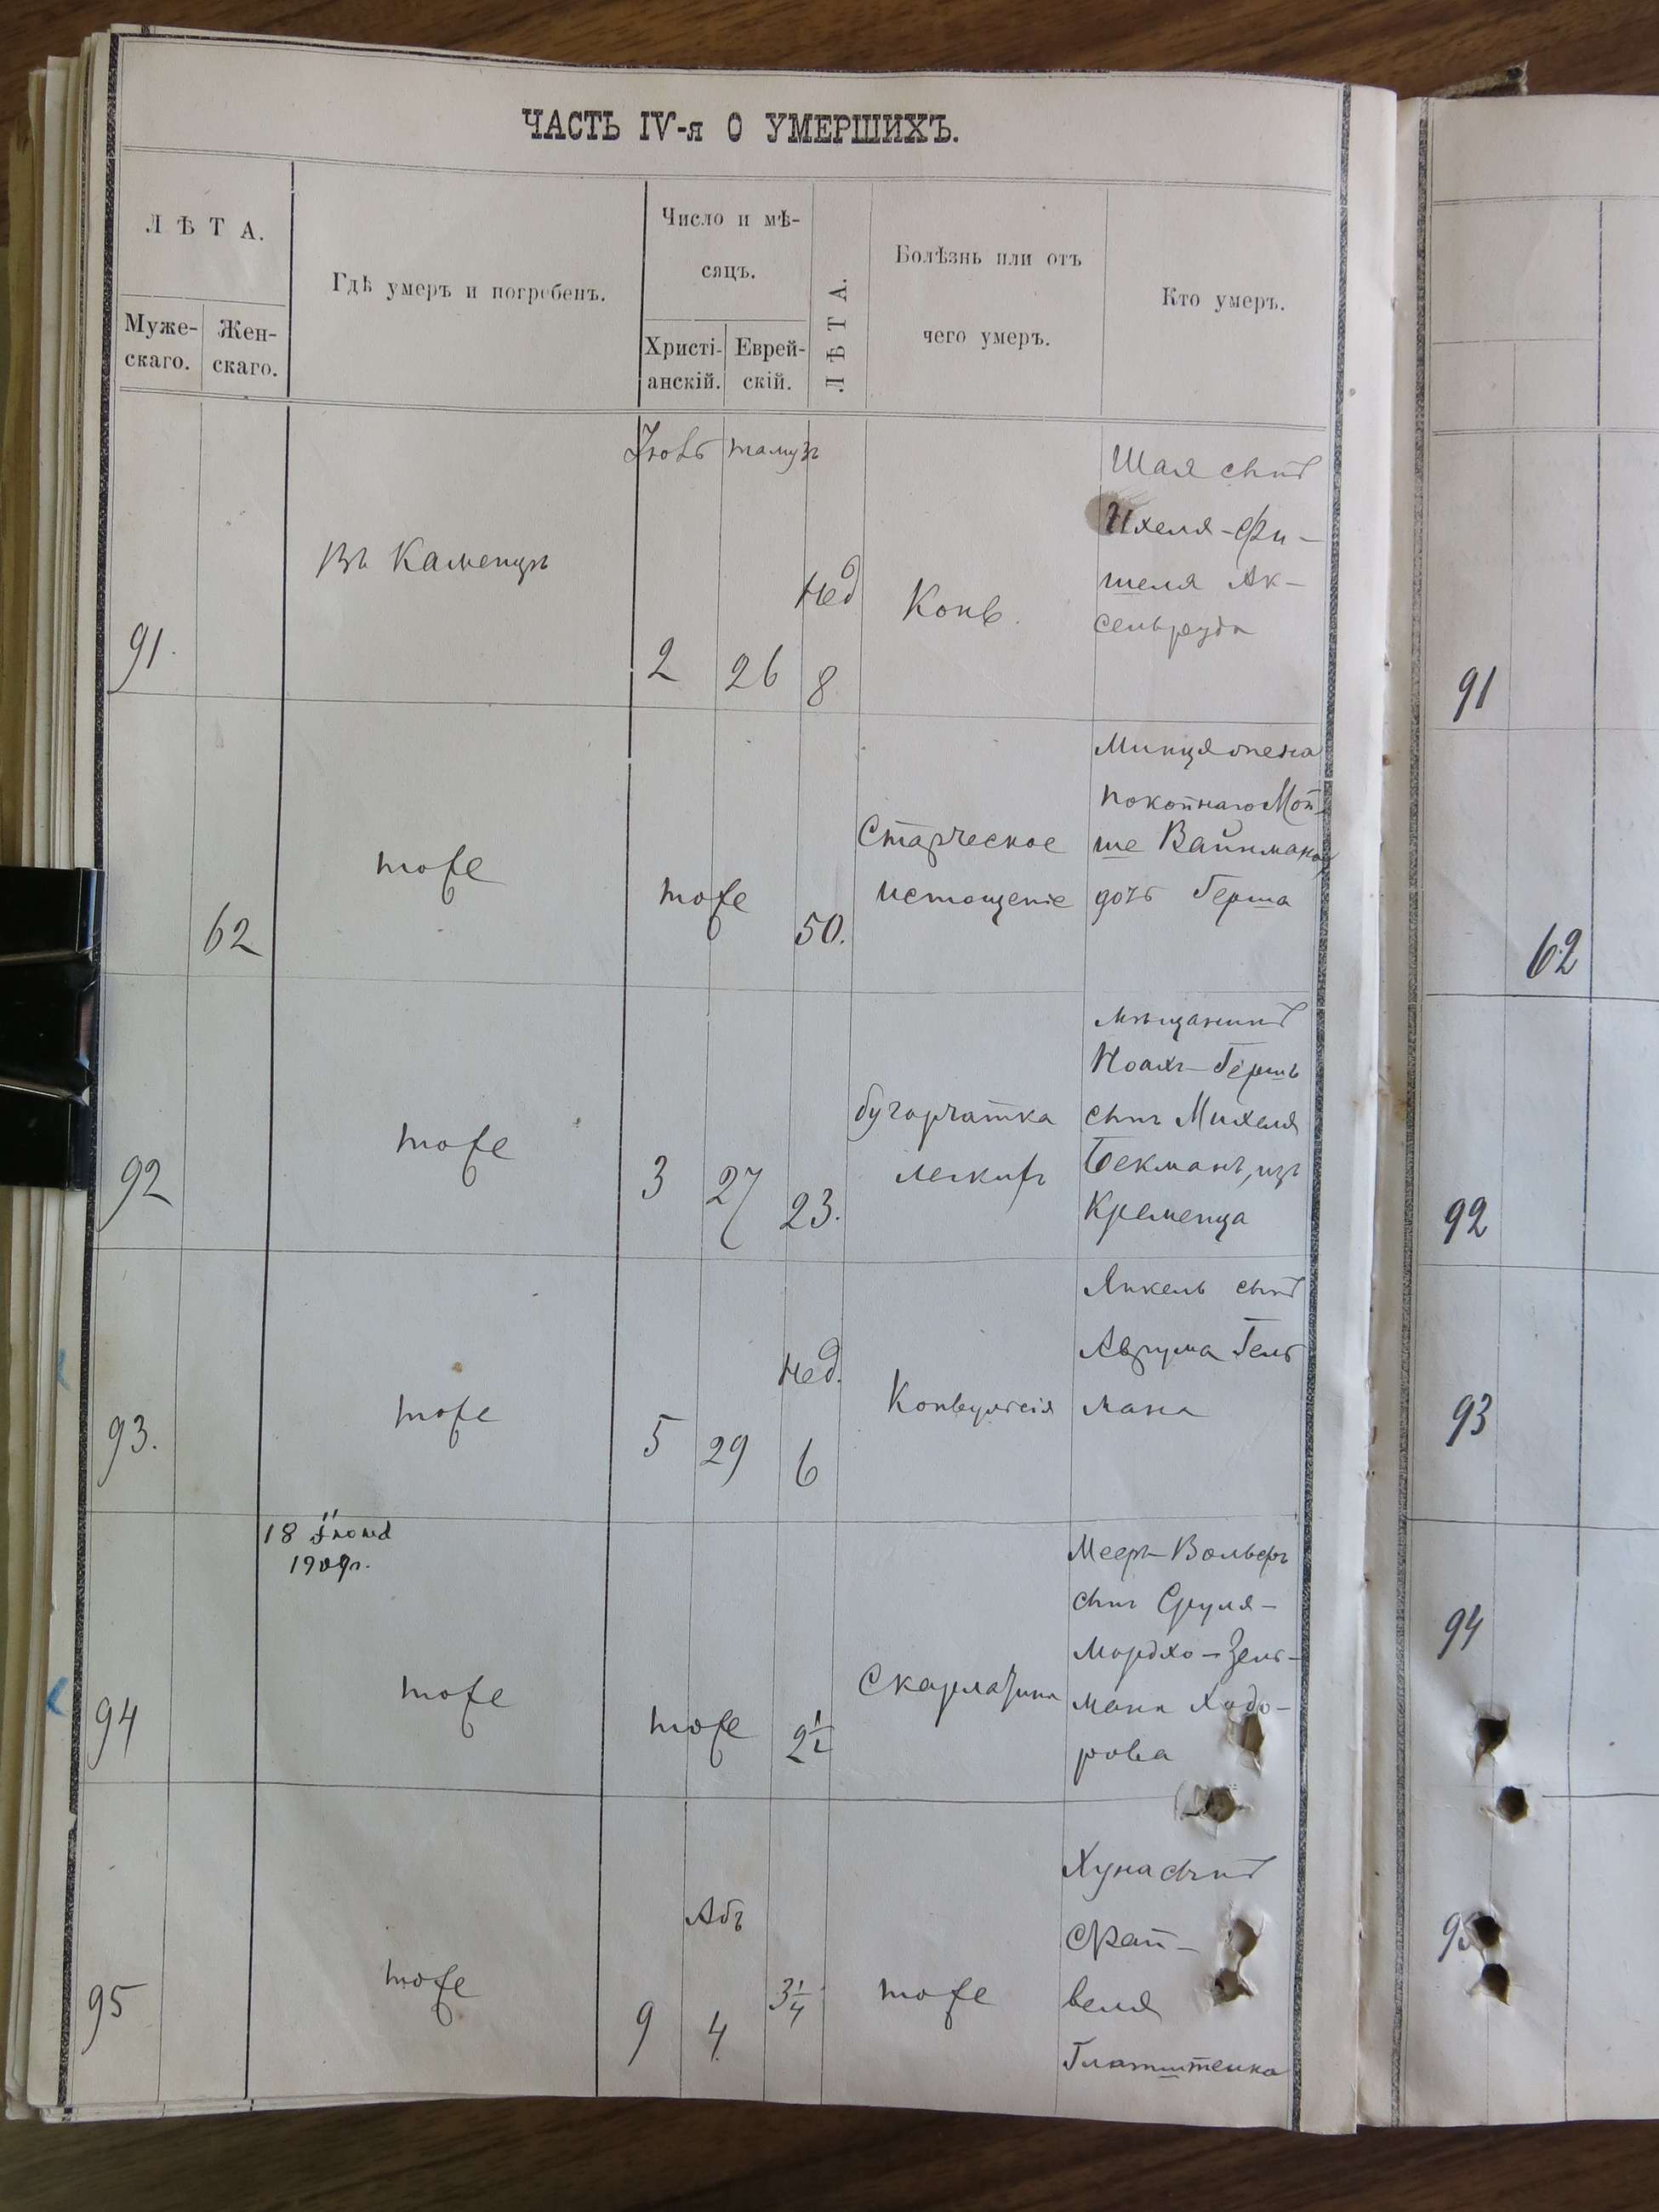 ЧАСТЬ IV-я О УМЕРШИХЪ.
ЛѢТА.
Муже-
скаго.
Жен-
скаго.
Гдѣ умеръ и погребенъ.
Число и мѣ-
сяцъ.
Христі-
анскій.
Еврей-
скій.
ЛѢТА.
Болѣзнь или отъ
чего умеръ.
Кто умеръ.
91.
Въ Каменцѣ
Іюль
2
тамузъ
26
Нед
8
Конв.
Шая сынъ
Ихеля-Фи-
шеля Ак-
сельруда
91
62
тоже
тоже
50.
Старческое
истощеніе
Минця жена
покойнаго Мой-
ше Вайнмана,
дочь Герша
62
92
тоже
3
27
23.
бугорчатка
легкихъ
мѣщанинъ
Ноахъ-Гершъ
сынъ Михеля
Бекманъ, изъ
Кременца
92
93.
тоже
5
29
Нед.
6
Конвульсія
Янкель сынъ
Аврума Гель
мана
93
18 Іюня
1909г.
94
тоже
тоже
2½
Скарлатина
Мееръ-Вольфъ
сынъ Сруля-
Мордхо-Зель-
мана Ходо-
рова
94
95
тоже
9
Абъ
4
3¼
тоже
Хуна сынъ
Фай-
веля
Глатштейна
95